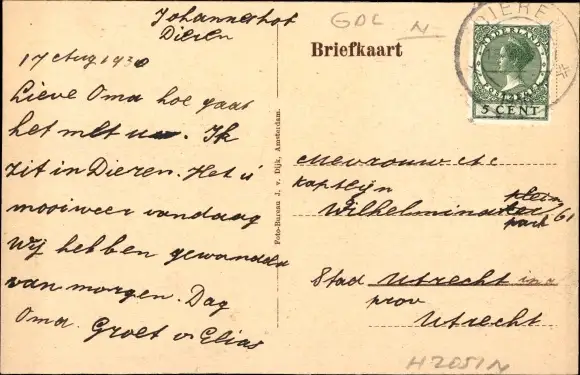 Johanneshof
Dieren
17 Aug 1930
Lieve Oma hoe gaat
het met u. Ik
zit in Dieren. Het is
mooi weer vandaag
Wij hebben gewandeld
van morgen. Dag
Oma. Groet v Elias
Foto-Bureau J. v. Dijk, Amsterdam.
GDL
N
Briefkaart
DIEREN
NEDERLAND
5 CENT
Mevrouw etc
Kapteijn
Wilhelmina
plein 61
park
Stad Utrecht in
prov
Utrecht
H2051N